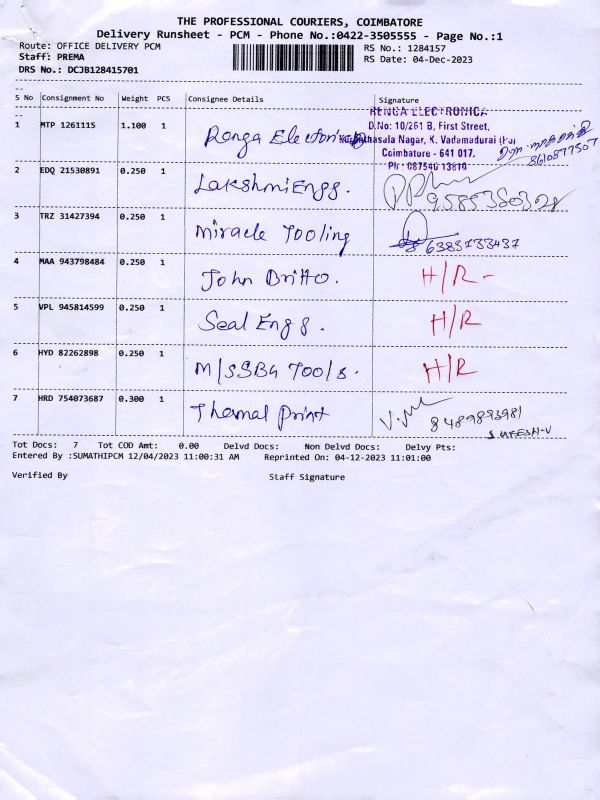 THE PROFESSIONAL COURIERS, COIMBATORE
Delivery Runsheet - PCM - Phone No.:0422-3505555 - Page No.:1
Route: OFFICE DELIVERY PCM RS No.: 1284157
Staff: PREMA RS Date: 04-Dec-2023
DRS No.: DCJB128415701
S No Consignment No Weight PCS Consignee Details Signature
RENGA ELECTRONICA
1 MTP 1261115 1.100 1 Renga D.No: 10/261 B, First Street,
Nagar, K. Vadamadurai (Po)
Coimbatore - 641 017. 8610877507
Ph : 087540 13810
2 EDQ 21530891 0.250 1 Lakshmi Engg. 9585360328
3 TRZ 31427394 0.250 1 Miracle Tooling 6383733437
4 MAA 943798484 0.250 1 John Britto. H/R -
5 VPL 945814599 0.250 1 Seal Engg. H/R
6 HYD 82262898 0.250 1 M/s SBG Tools. H/R
7 HRD 754073687 0.300 1 Thermal Print 8489893981
Tot Docs: 7 Tot COD Amt: 0.00 Delvd Docs: Non Delvd Docs: Delvy Pts:
Entered By :SUMATHIPCM 12/04/2023 11:00:31 AM Reprinted On: 04-12-2023 11:01:00
Verified By Staff Signature